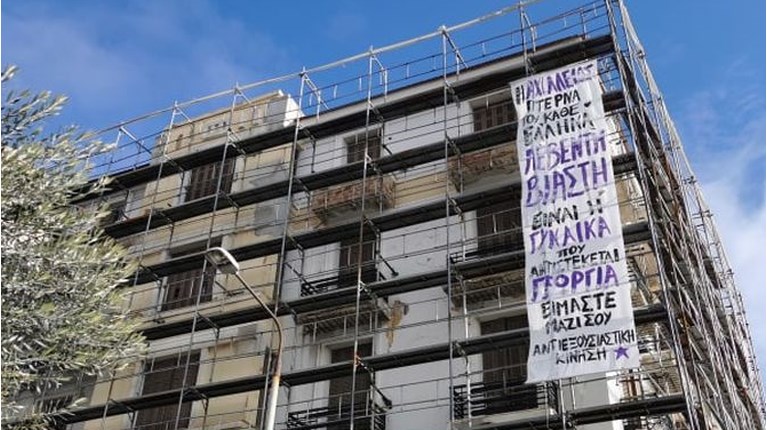 Η ΑΧΙΛΛΕΙΟΣ
ΠΤΕΡΝΑ
ΤΟΥ ΚΑΘΕ
ΕΛΛΗΝΑ
ΛΕΒΕΝΤΗ
ΒΙΑΣΤΗ
ΕΙΝΑΙ Η
ΓΥΝΑΙΚΑ
ΠΟΥ
ΑΝΤΙΣΤΕΚΕΤΑΙ
ΓΕΩΡΓΙΑ
ΕΙΜΑΣΤΕ
ΜΑΖΙ ΣΟΥ
ΑΝΤΙΕΞΟΥΣΙΑΣΤΙΚΗ
ΚΙΝΗΣΗ